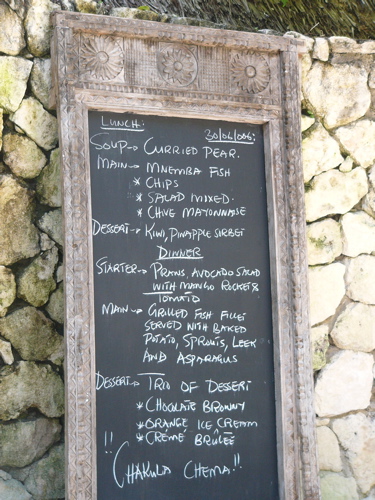 LUNCH: 30/06/006:
SOUP→ CURRIED PEAR.
MAIN→ MNEMBA FISH
* CHIPS
* SALAD MIXED.
* CHIVE MAYONNAISE
DESSERT→ KIWI, PINAPPLE SORBET
DINNER
STARTER→ PRAWS, AVOCADO SALAD
WITH MANGO ROCKET &
TOMATO
MAIN→ GRILLED FISH FILLET
SERVED WITH BAKED
POTATO, SPROUTS, LEEK
AND ASPARAGUS
DESSERT→ TRIO OF DESSERT
* CHOCOLATE BROWNY
* ORANGE ICE CREAM
* CREMÉ BRÛLÉE
!! CHAKULA CHEMA!!